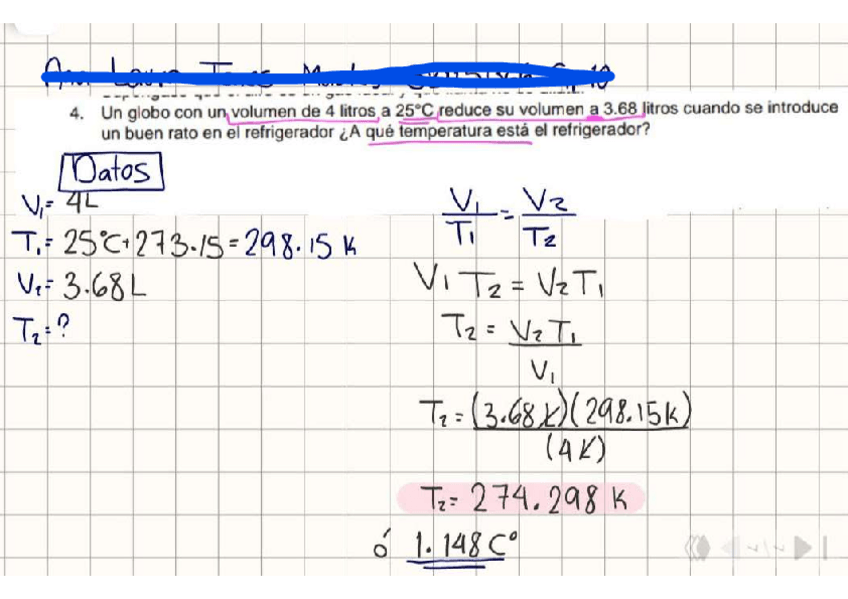 4. Un globo con un volumen de 4 litros a 25°C reduce su volumen a 3.68 litros cuando se introduce
un buen rato en el refrigerador ¿A qué temperatura está el refrigerador?
Datos
V₁= 4L
T₁= 25°C+273.15=298.15 K
V₂= 3.68L
T₂=?
V₁/T₁ = V₂/T₂
V₁ T₂ = V₂ T₁
T₂ = V₂ T₁/V₁
T₂=(3.68 L)(298.15K)/(4 L)
T₂= 274.298 K
ó 1.148 C°